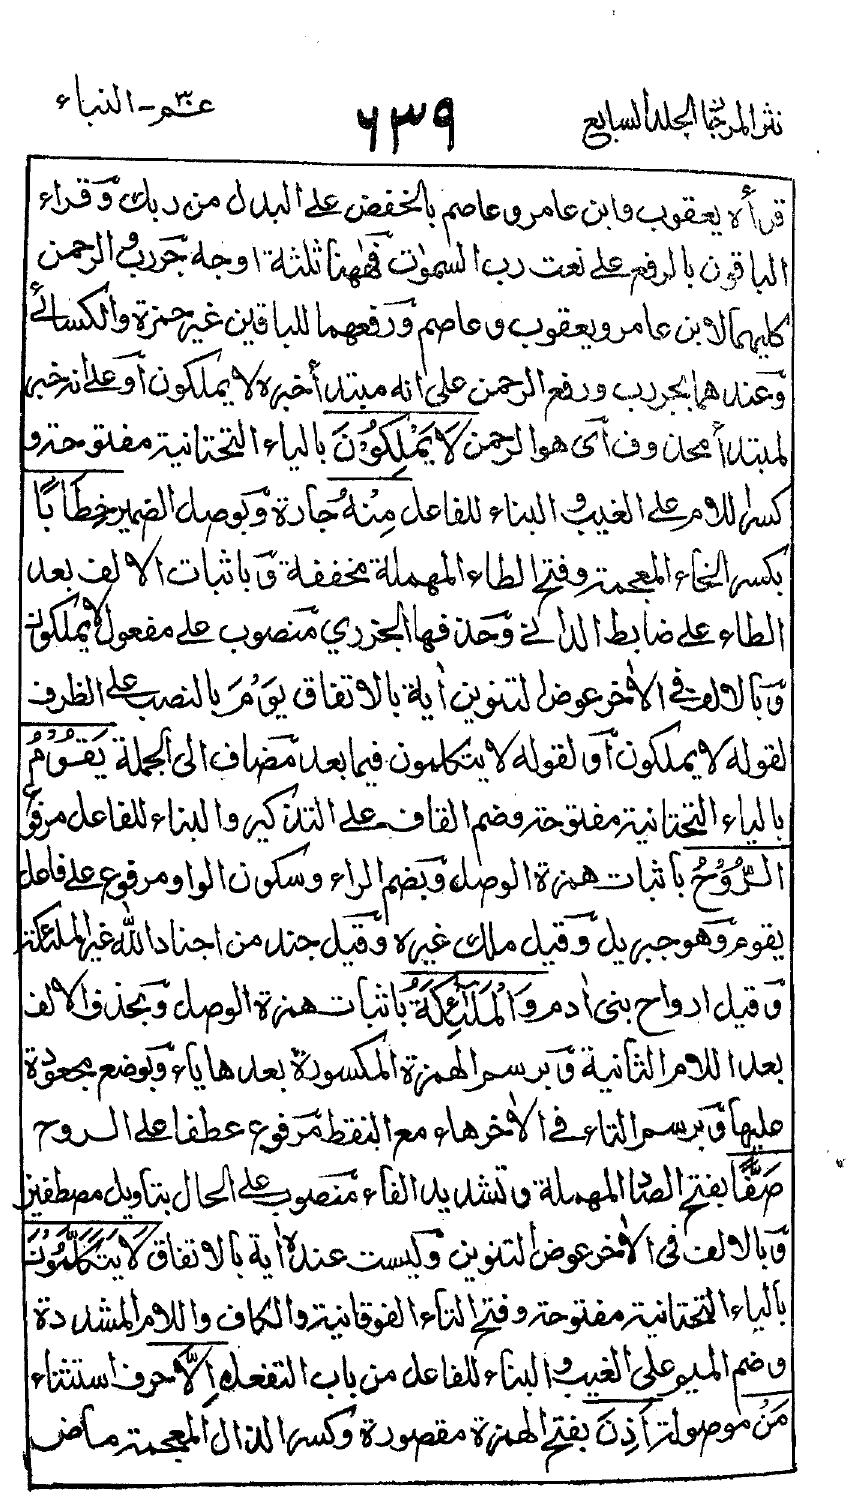 نثر المرجان الجلد السابع
٦٣٩
عم - النباء
قرأه يعقوب وابن عامر وعاصم بالخفض على البدل من ربك وقراء
الباقون بالرفع على نعت رب السموات فههنا ثلثة اوجه جر رب والرحمن
كليهما لابن عامر ويعقوب وعاصم ورفعهما للباقين غير حمزة والكسائي
وعندهما بجر رب ورفع الرحمن على انه مبتدأ خبره لا يملكون أو على انه خبر
لمبتدأ محذوف أي هو الرحمن لَا يَمْلِكُوْنَ بالياء التحتانية مفتوحة و
كسر اللام على الغيب و البناء للفاعل مِنْهُ جارة وبوصل الضمير خِطَابًا
بكسر الخاء المعجمة وفتح الطاء المهملة مخففة وباثبات الالف بعد
الطاء على ضابط الداني وحذفها الجزري منصوب على مفعول لا يملكون
وبالالف في الاٰخر عوض التنوين اٰية بالاتفاق يَوْمَ بالنصب على الظرف
لقوله لا يملكون أو لقوله لا يتكلمون فيما بعد مضاف الى الجملة يَقُوْمُ
بالياء التحتانية مفتوحة وضم القاف على التذكير والبناء للفاعل مرفوع
الرُّوْحُ باثبات همزة الوصل وبضم الراء وسكون الواو مرفوع على فاعل
يقوم وهو جبريل وقيل ملك غيره وقيل جند من اجناد الله غير الملئكة
وقيل ارواح بني اٰدم وَالْمَلٰٓئِكَةُ باثبات همزة الوصل وبحذف الالف
بعد اللام الثانية وبرسم الهمزة المكسورة بعدها ياء وبوضع مجعودة
عليها وبرسم التاء في الاٰخر هاء مع النقط مرفوع عطفا على الروح
صَفًّا بفتح الصاد المهملة وتشديد الفاء منصوب على الحال بتاويل مصطفين
وبالالف في الاٰخر عوض التنوين وليست عنده اٰية بالاتفاق لَا يَتَكَلَّمُوْنَ
بالياء التحتانية مفتوحة وفتح التاء الفوقانية والكاف واللام المشددة
وضم الميم على الغيب و البناء للفاعل من باب التفعل اِلَّا حرف استثناء
مَنْ موصولة أَذِنَ بفتح الهمزة مقصورة وكسر الذال المعجمة ماض